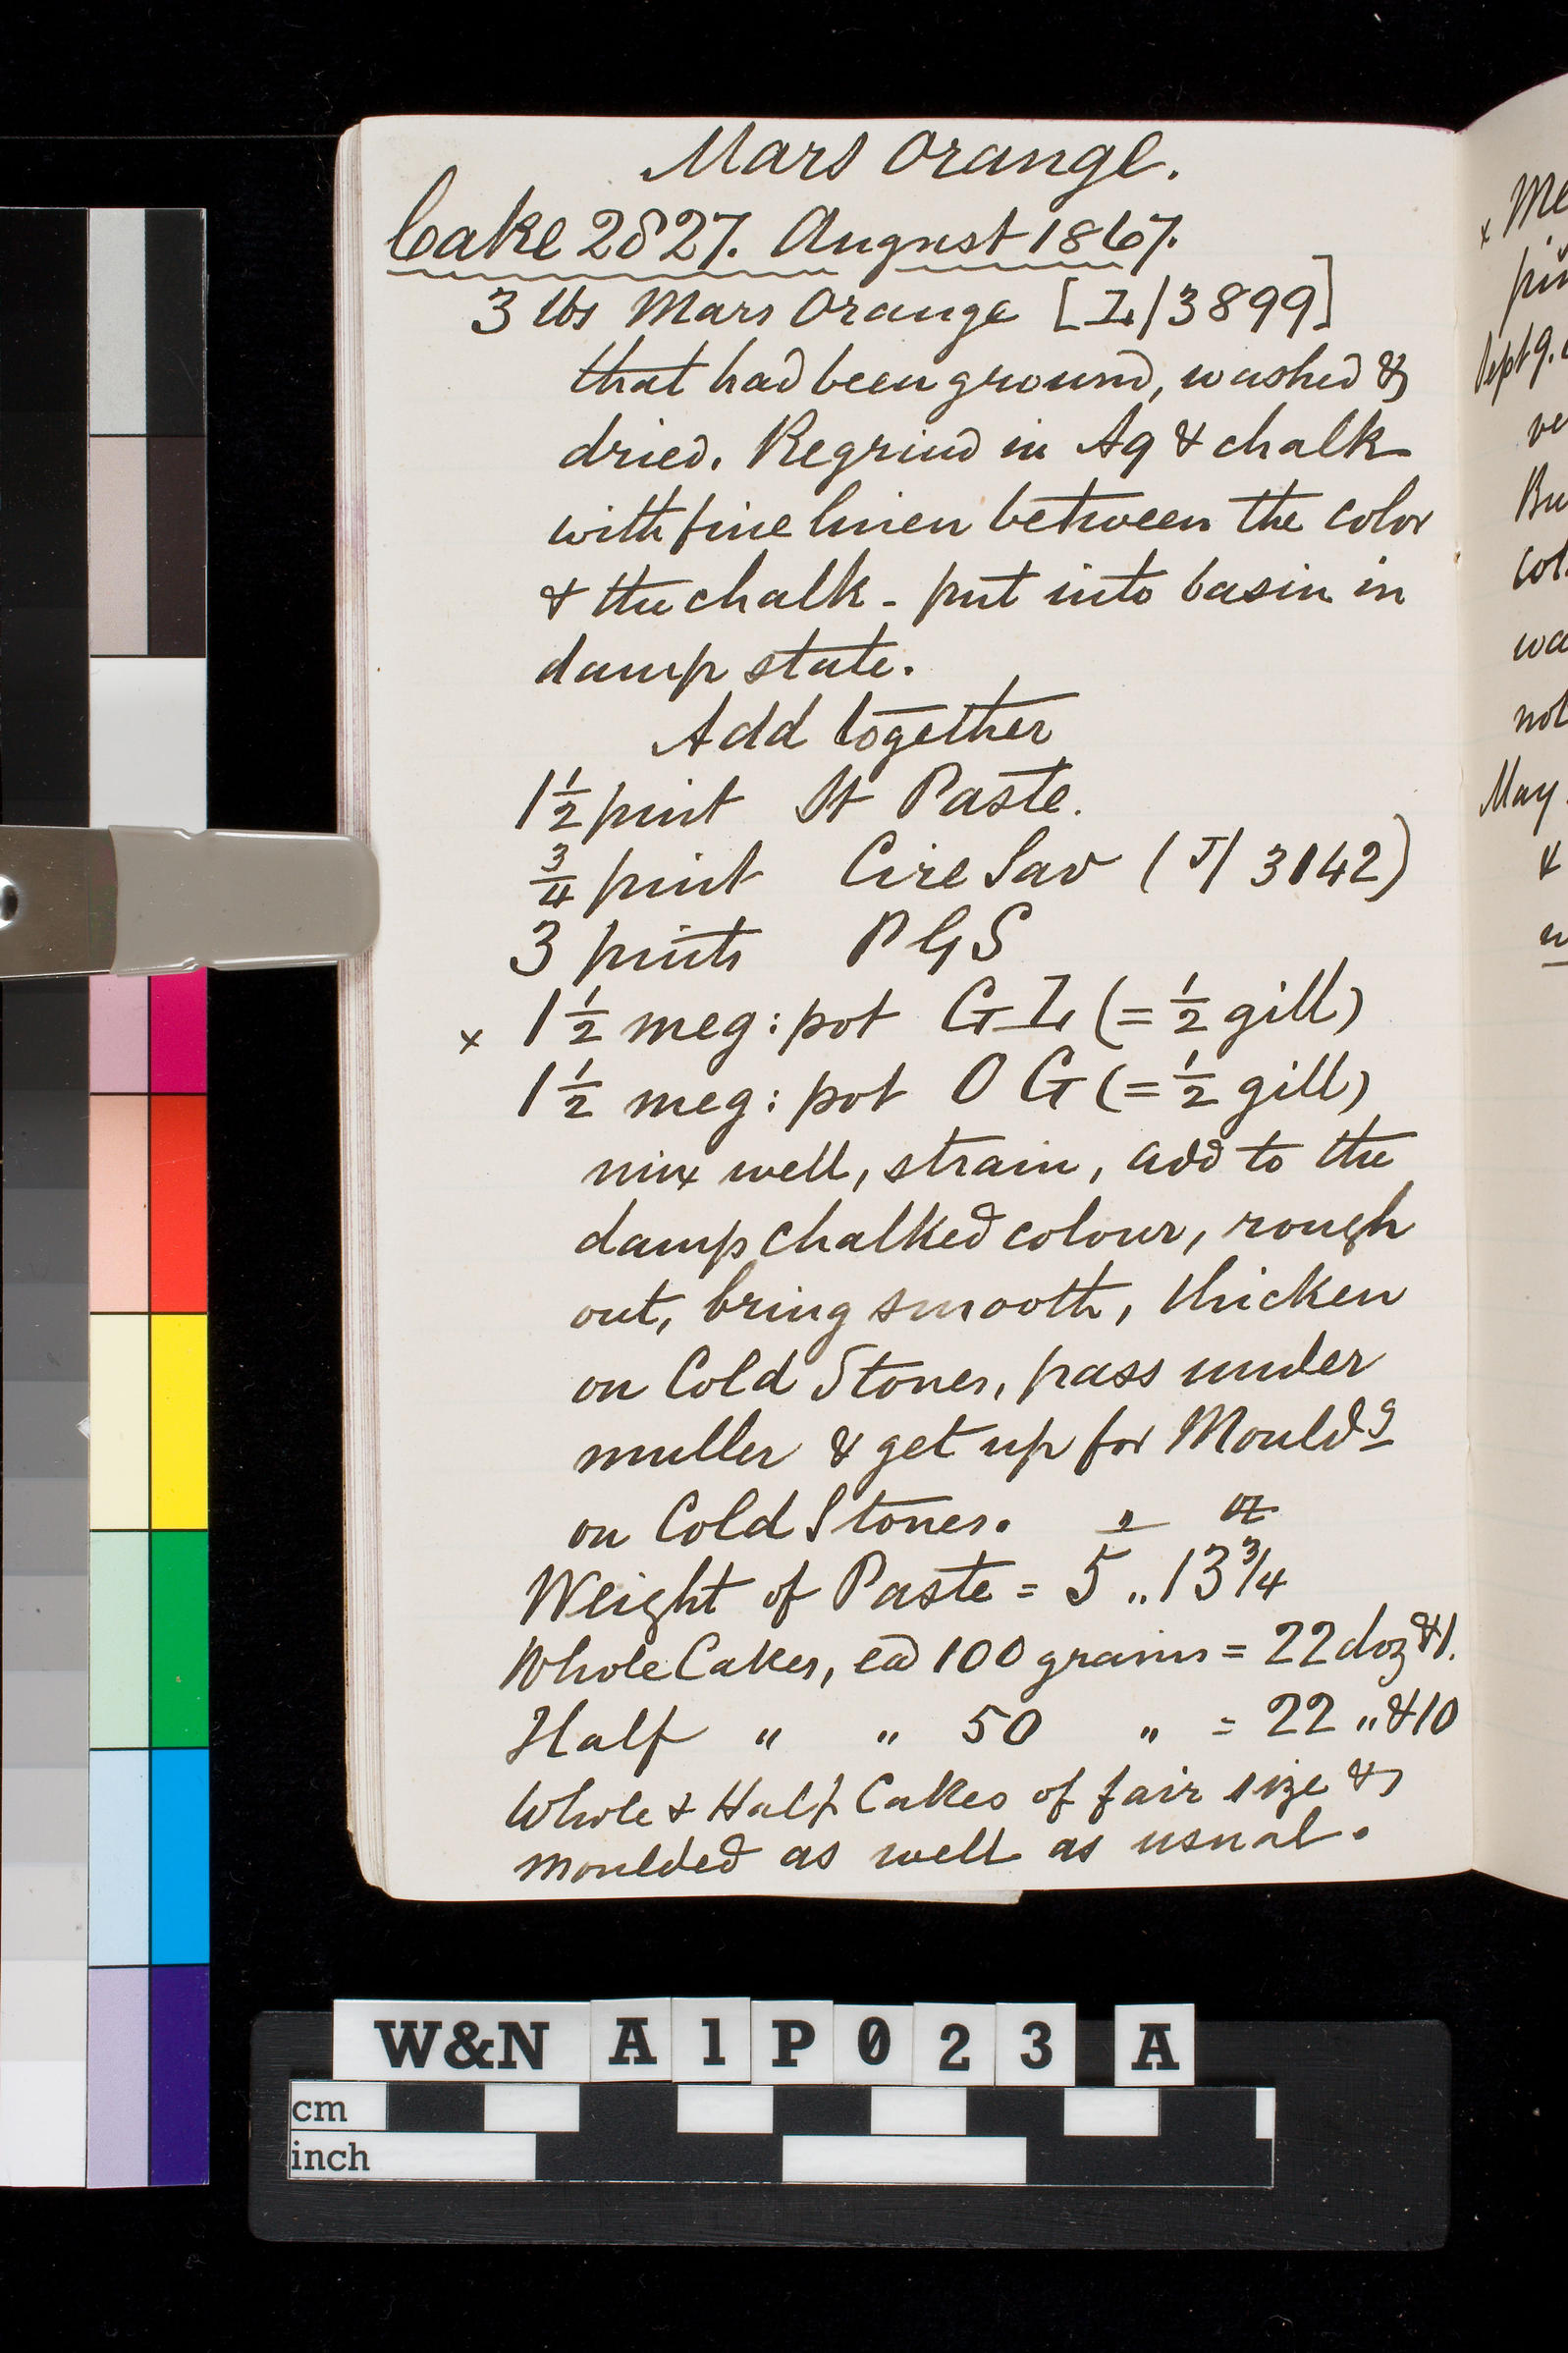 Mars Orange.
Cake 2827. August 1867.
3 lbs Mars Orange [I/3899]
that had been ground, washed &
dried. Regrind in Aq & chalk
with fine linen between the color
& the chalk - put into basin in
damp state.
Add together
1 1/2 pint St Paste.
3/4 pint Cire Sav (J/3142)
3 pints P G S
x 1 1/2 meg: pot G I (= 1/2 gill)
1 1/2 meg: pot O G (= 1/2 gill)
mix well, strain, add to the
damp chalked colour, rough
out, bring smooth, thicken
on Cold Stones, pass under
muller & get up for Mouldg
on Cold Stones. oz
Weight of Paste = 5 .. 13 3/4
Whole Cakes, ea 100 grains = 22 doz & 1.
Half " " 50 " = 22 " & 10
Whole & Half Cakes of fair size &
moulded as well as usual.
x Me
pin
Sept 9.
ve
Bu
Col
wa
not
May
&
W&N A1P023 A
cm
inch